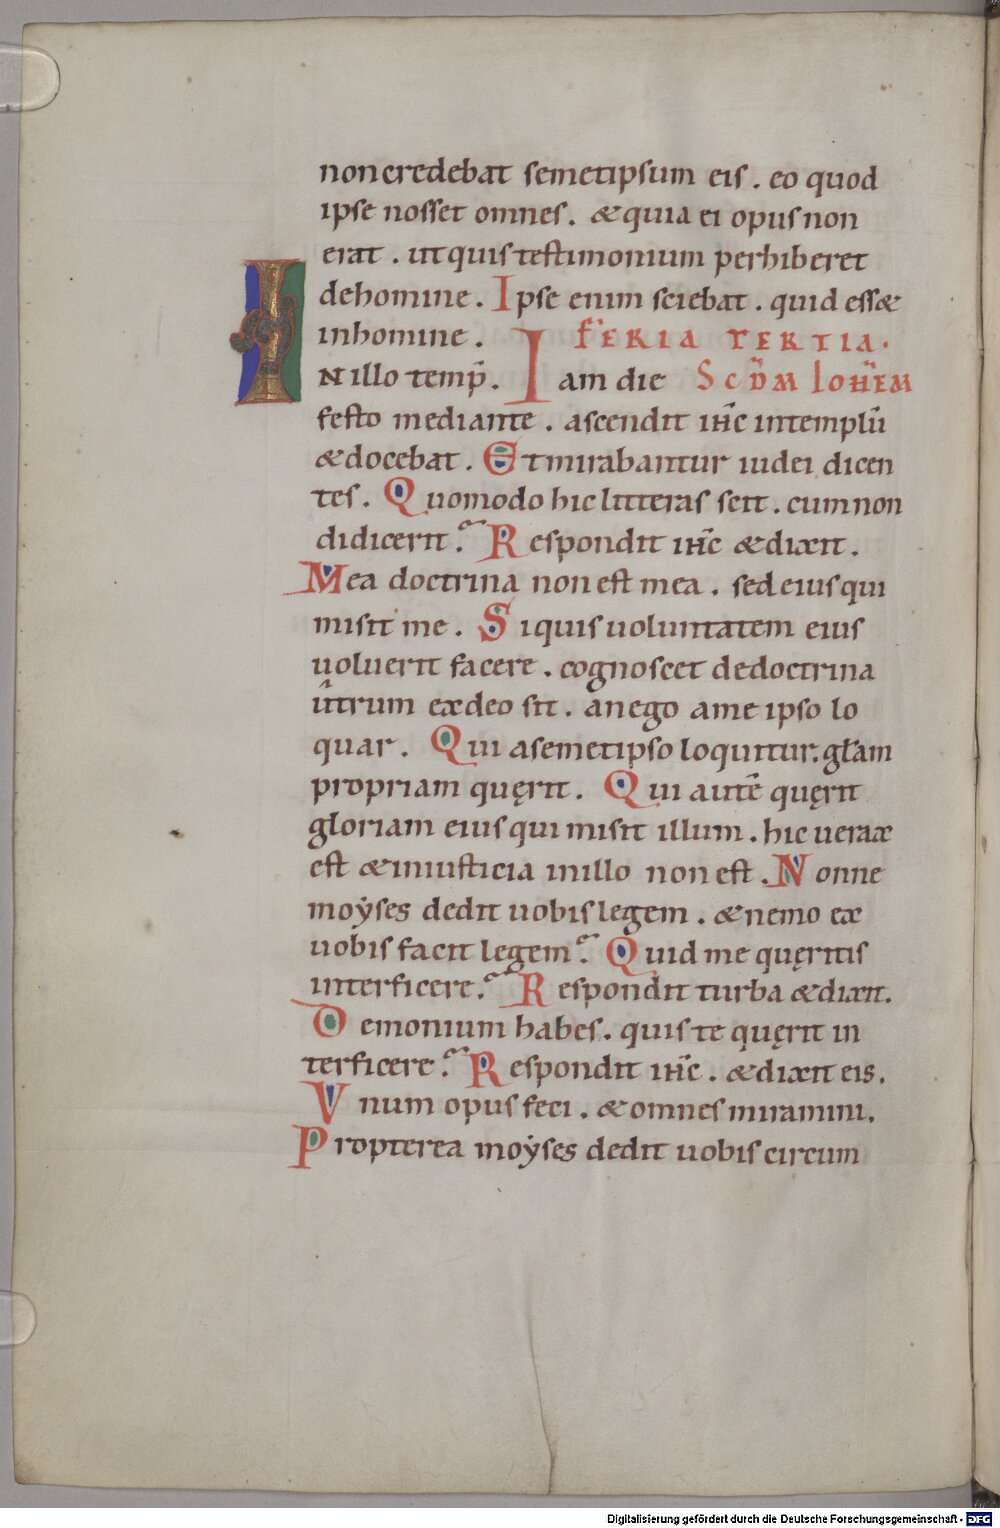 non credebat semetipsum eis. eo quod
ipse nosset omnes. & quia ei opus non
erat. ut quis testimonium perhiberet
de homine. Ipse enim sciebat. quid ess&
in homine. FERIA TERTIA.
IN illo temp̄. Iam die SCD̄M IOH̄EM
festo mediante. ascendit ih̄c in templū
& docebat. Et mirabantur iudei dicen
tes. Quomodo hic litteras scit. cum non
didicerit? Respondit ih̄c & dixit.
Mea doctrina non est mea. sed eius qui
misit me. Si quis uoluntatem eius
uoluerit facere. cognoscet de doctrina
utrum ex deo sit. an ego a me ipso lo
quar. Qui a semetipso loquitur. gl̄am
propriam quęrit. Qui autē quęrit
gloriam eius qui misit illum. hic uerax
est & iniusticia in illo non est. Nonne
moẏses dedit uobis legem. & nemo ex
uobis facit legem? Quid me quęritis
interficere? Respondit turba & dixit.
Demonium habes. quis te quęrit in
terficere? Respondit ih̄c. & dixit eis.
Vnum opus feci. & omnes miramini.
Propterea moẏses dedit uobis circum
Digitalisierung gefördert durch die Deutsche Forschungsgemeinschaft - DFG